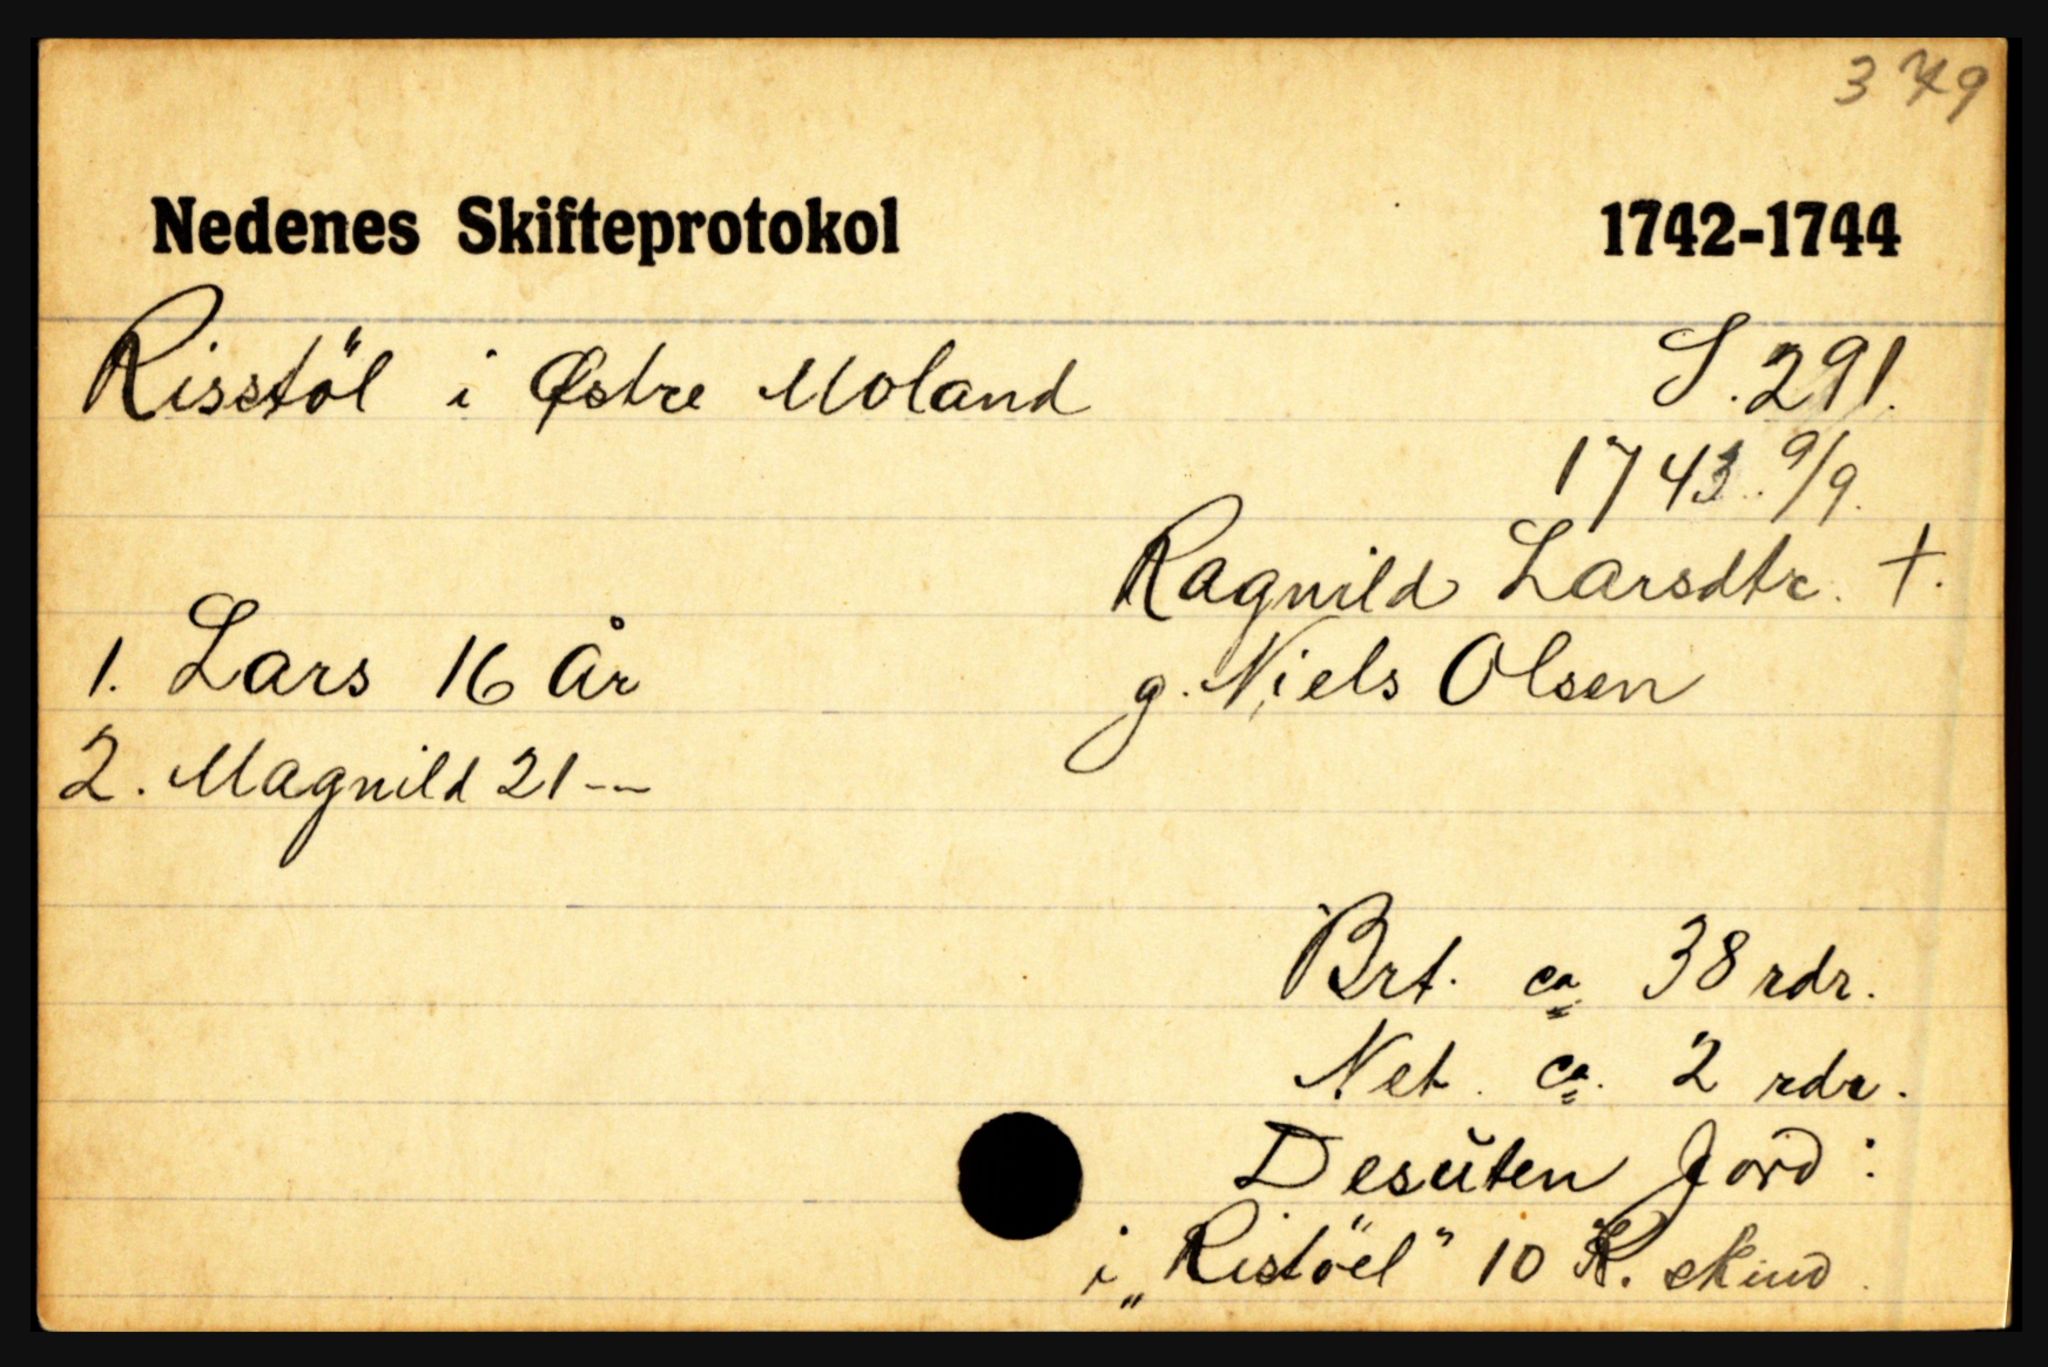 379
Nedenes Skifteprotokol 1742-1744
Risstöl i Østre Moland S. 291.
1743. 9/9.
Ragnild Larsdtr. †.
1. Lars 16 år g. Niels Olsen
2. Magnild 21 -–
Brt. ca 38 rdr.
Net. ca. 2 rdr.
Desŭten Jord:
i „Ristöel" 10 K. skind.